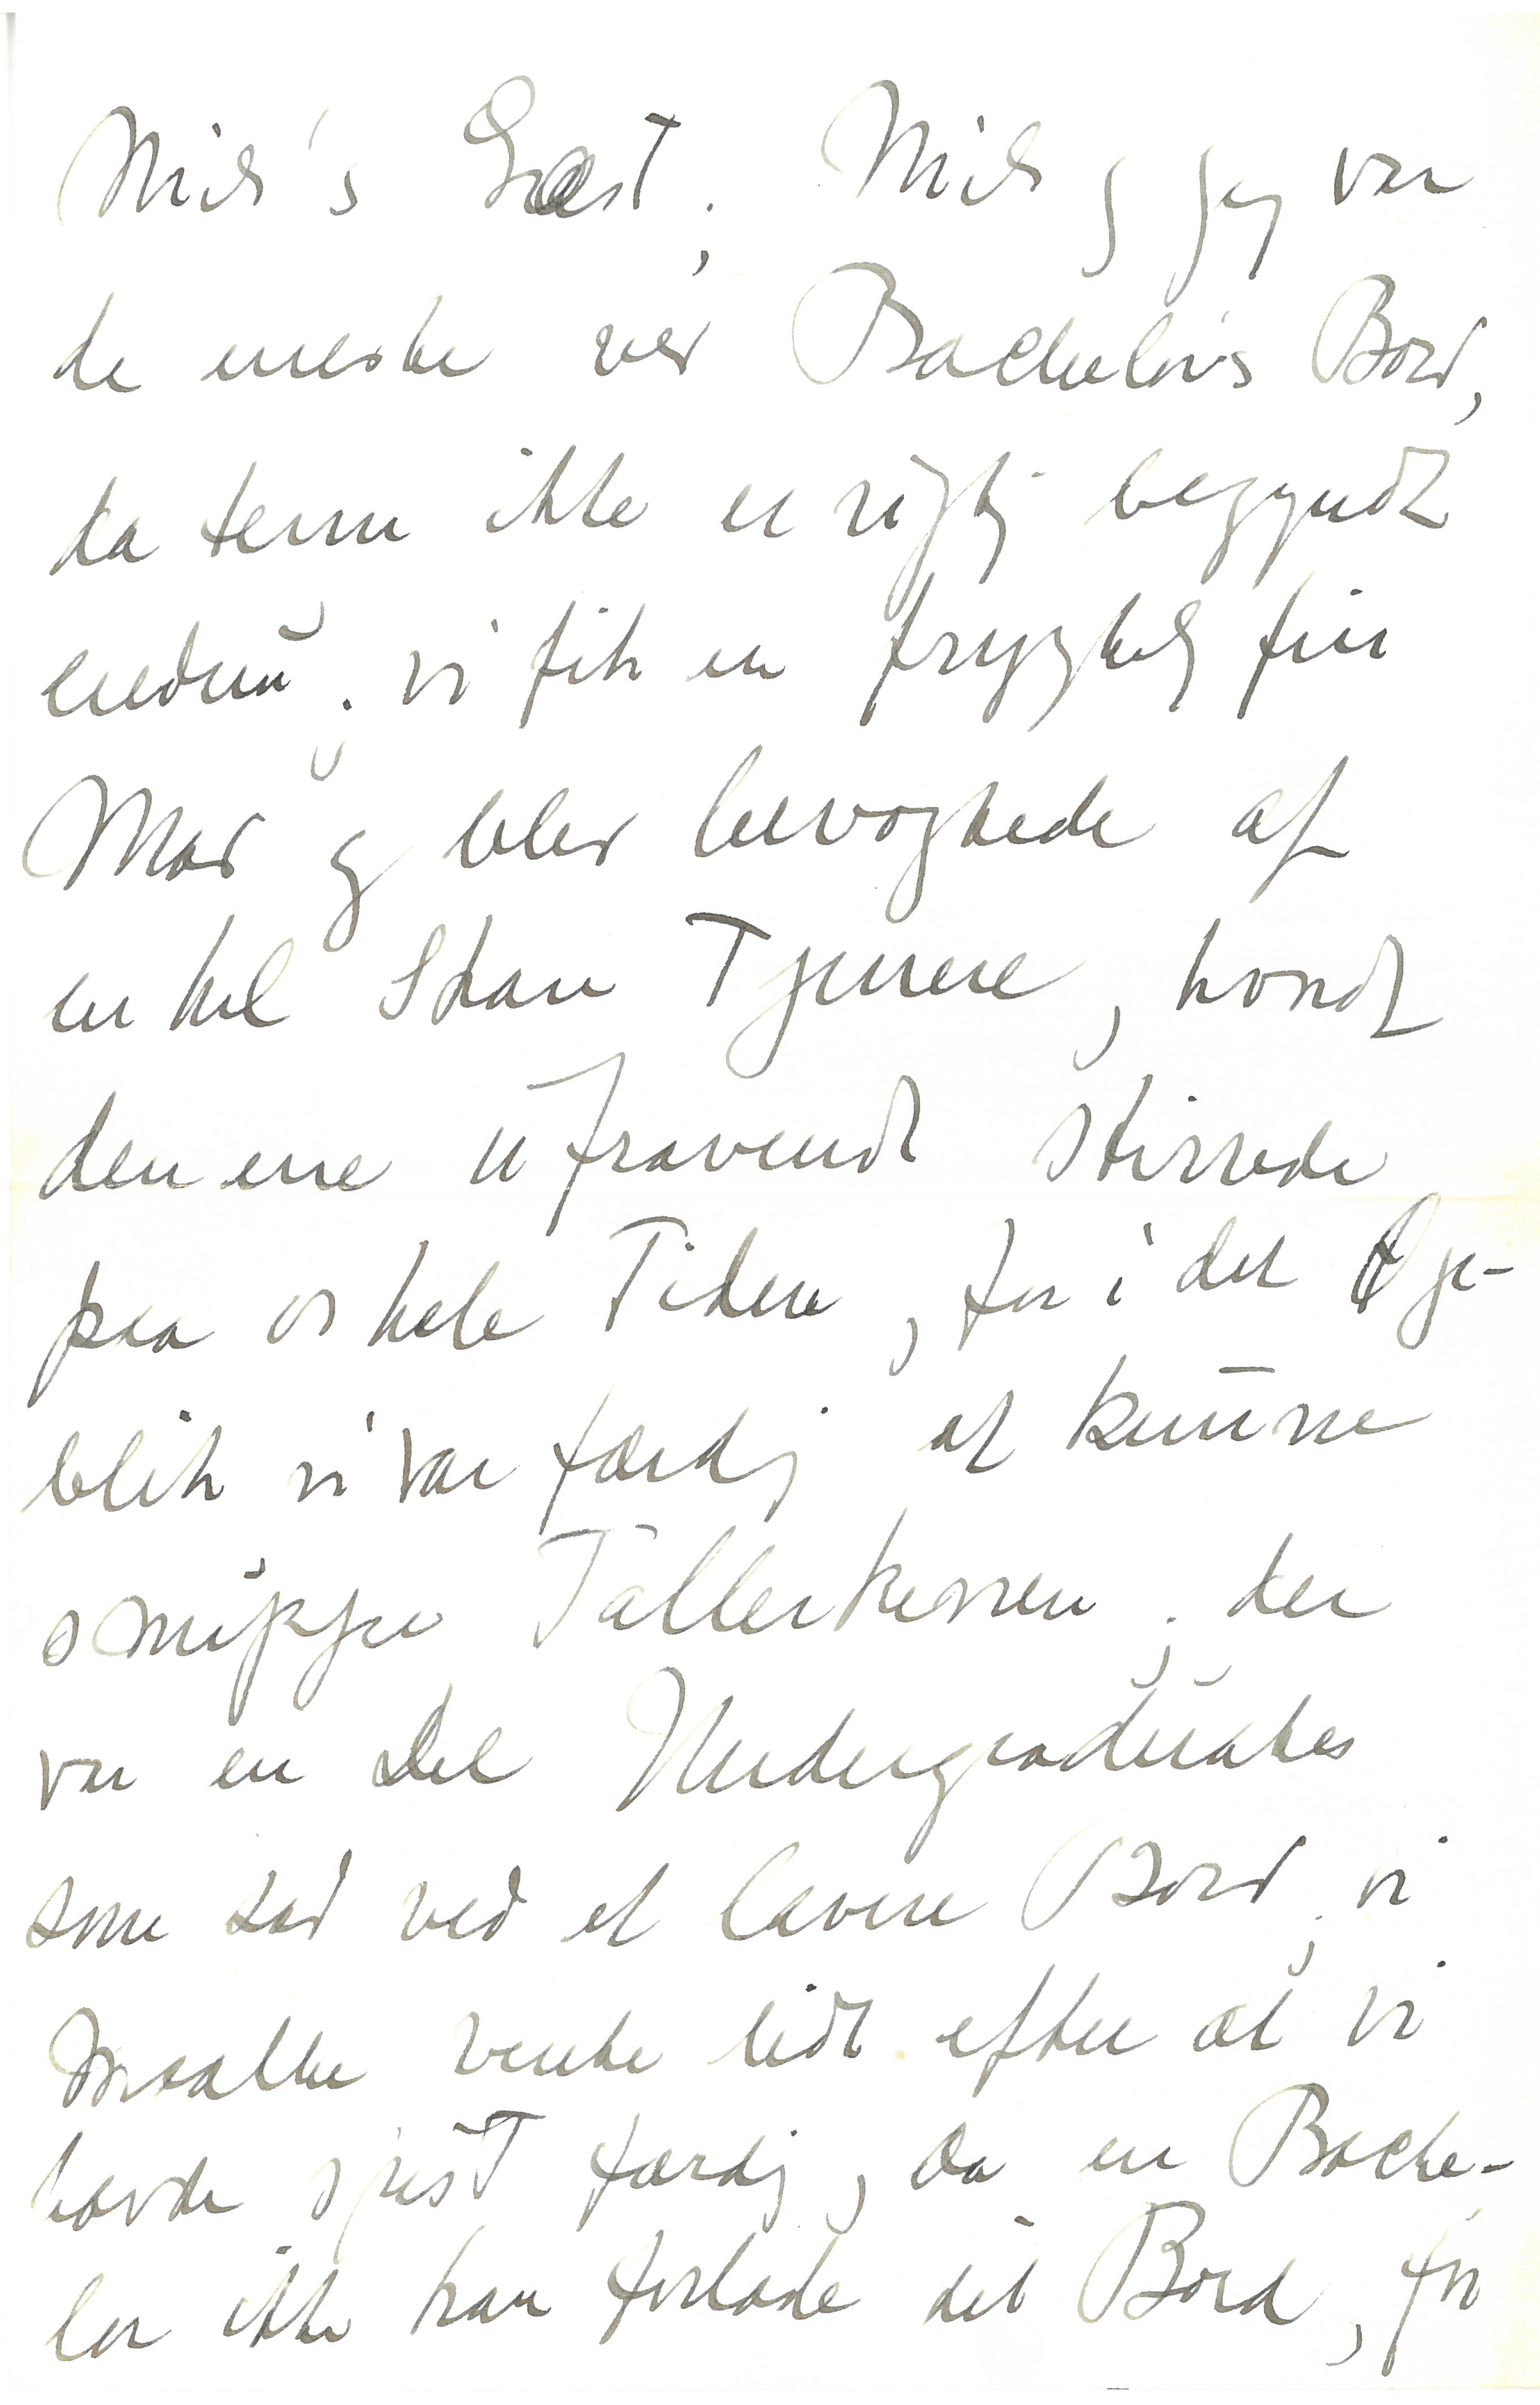 Mich's Gæst; Mich og jeg var
de eneste ved Bachelor's Bord,
da term ikke er rigtig begyndt
endnu; vi fik en frygtelig fin
Mad og blev bevogtede af
en hel Skare Tjenere, hvoraf
den ene ufravendt stirrede
paa os hele Tiden, for i det Øje-
blik vi var færdig at kunne
snuppe Tallerkenen; der
var en Del Undergraduates
som sad ved et lavere Bord; vi
maatte vente lidt efter at vi
havde spist færdig, da en Bache-
lor ikke kan forlade sit Bord, før